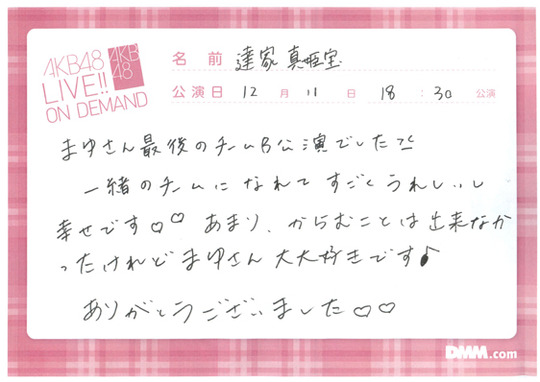 AKB48
LIVE!!
ON DEMAND
AKB
48
名前 達家真姫宝
公演日 12月11日 18:30公演
まゆさん最後のチームB公演でした
一緒のチームになれてすごくうれしいし
幸せです♡♡ あまり、からむことは出来なか
ったけれどまゆさん大大好きです♪
ありがとうございました♡♡
DMM.com